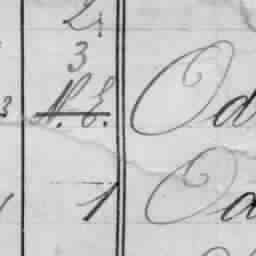 2
3
3 N. E. Od
1 Od